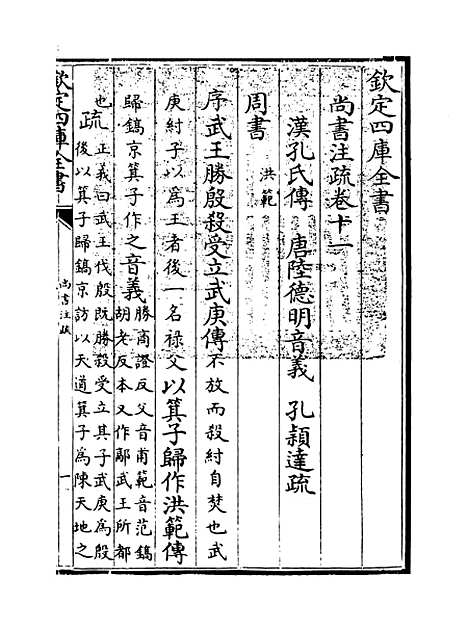 欽定四庫全書
尚書注疏卷十一
漢孔氏傳　唐陸德明音義　孔穎達疏
周書
洪範
序武王勝殷殺受立武庚傳不放而殺紂自焚也武
庚紂子以為王者後一名祿父以箕子歸作洪範傳
歸鎬京箕子作之音義勝商證反父音甫範音范鎬
胡老反本又作鄗武王所都
也疏正義曰武王伐殷既勝殺受立其子武庚為殷
後以箕子歸鎬京訪以天道箕子為陳天地之
欽定四庫全書
尚書注疏
一